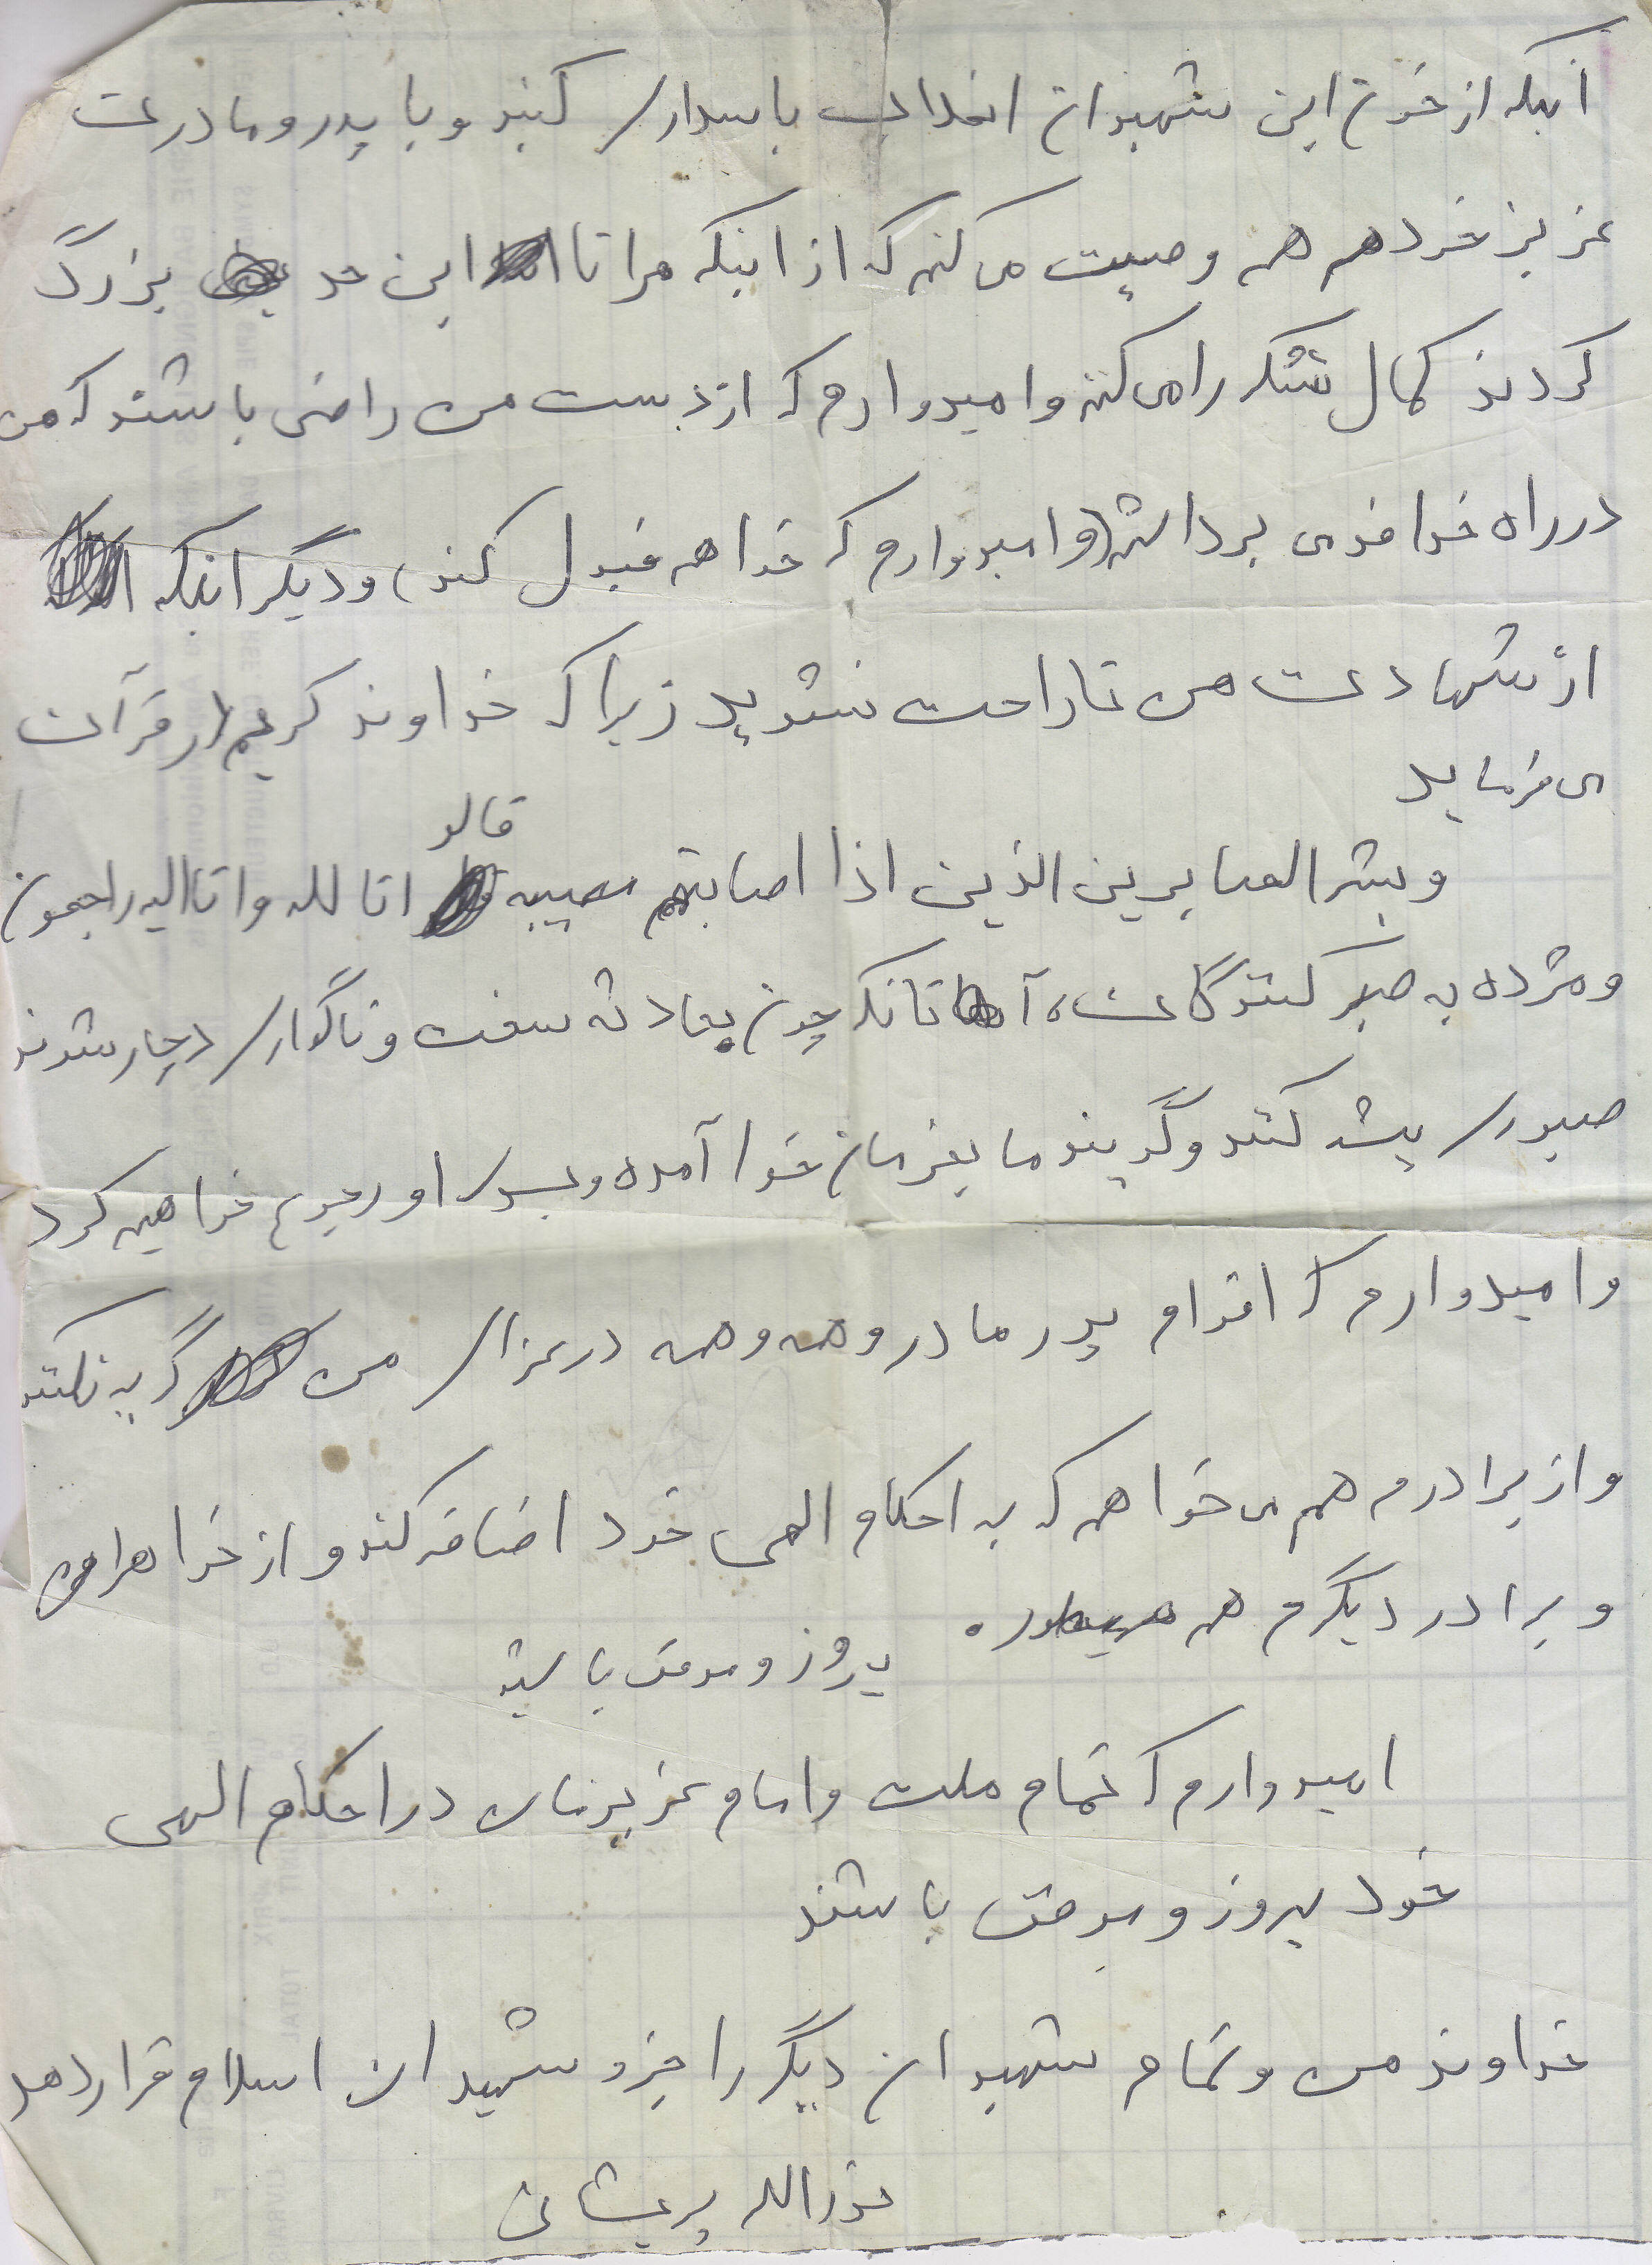 اینکه از خون این شهیدان انقلاب پاسداری کنید و با پدر و مادرت
عزیز خودم هم وصیت می کنم که از اینکه مرا تا این حد بزرگ
کردند کمال تشکر را می کنم و امیدوارم که از دست من راضی باشند که من
در راه خدا قدمی برداشتم (و امیدوارم که خدا هم قبول کند) و دیگر اینکه
از شهادت من ناراحت نشدید زیرا که خداوند کریم در قرآن
می فرماید
و بشر الصابرین الذین اذا اصابتهم مصیبه قالو انا لله و انا الیه راجعون
و مژده به صبر کنندگان، آنانکه چون بحادثه سخت و ناگواری دچار شوند
صبوری پیشه کنند و گویند ما بفرمان خدا آمده و بسوی او رجوع خواهیم کرد
و امیدوارم که اقوام پدر مادر و همه و همه در عزای من گریه نکنند
و از برادرم هم می خواهم که به احکام الهی خود اضافه کند و از خواهرام
و برادر دیگرم هم
پیروز و موفق باشید
امیدوارم که تمام ملت و امام عزیزمان در احکام الهی
خود پیروز و موفق باشند
خداوند من و تمام شهیدان دیگر را جزو شهیدان اسلام قرار دهد
پریشانی